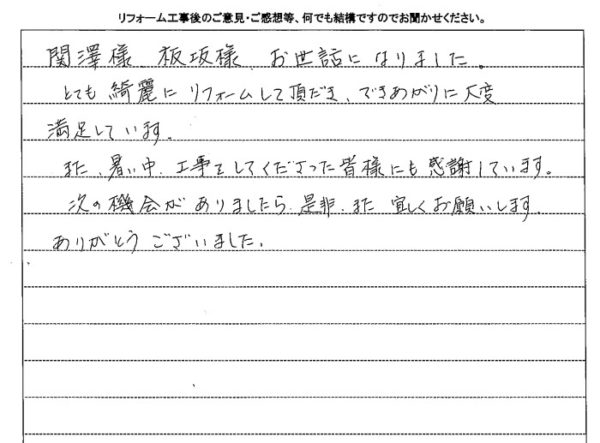 リフォーム工事後のご意見・ご感想等、何でも結構ですのでお聞かせください。
関澤様、板坂様、お世話になりました。
とても綺麗にリフォームして頂だき、できあがりに大変
満足しています。
また、暑い中、工事をしてくださった皆様にも感謝しています。
次の機会がありましたら、是非、また宜しくお願いします。
ありがとうございました。